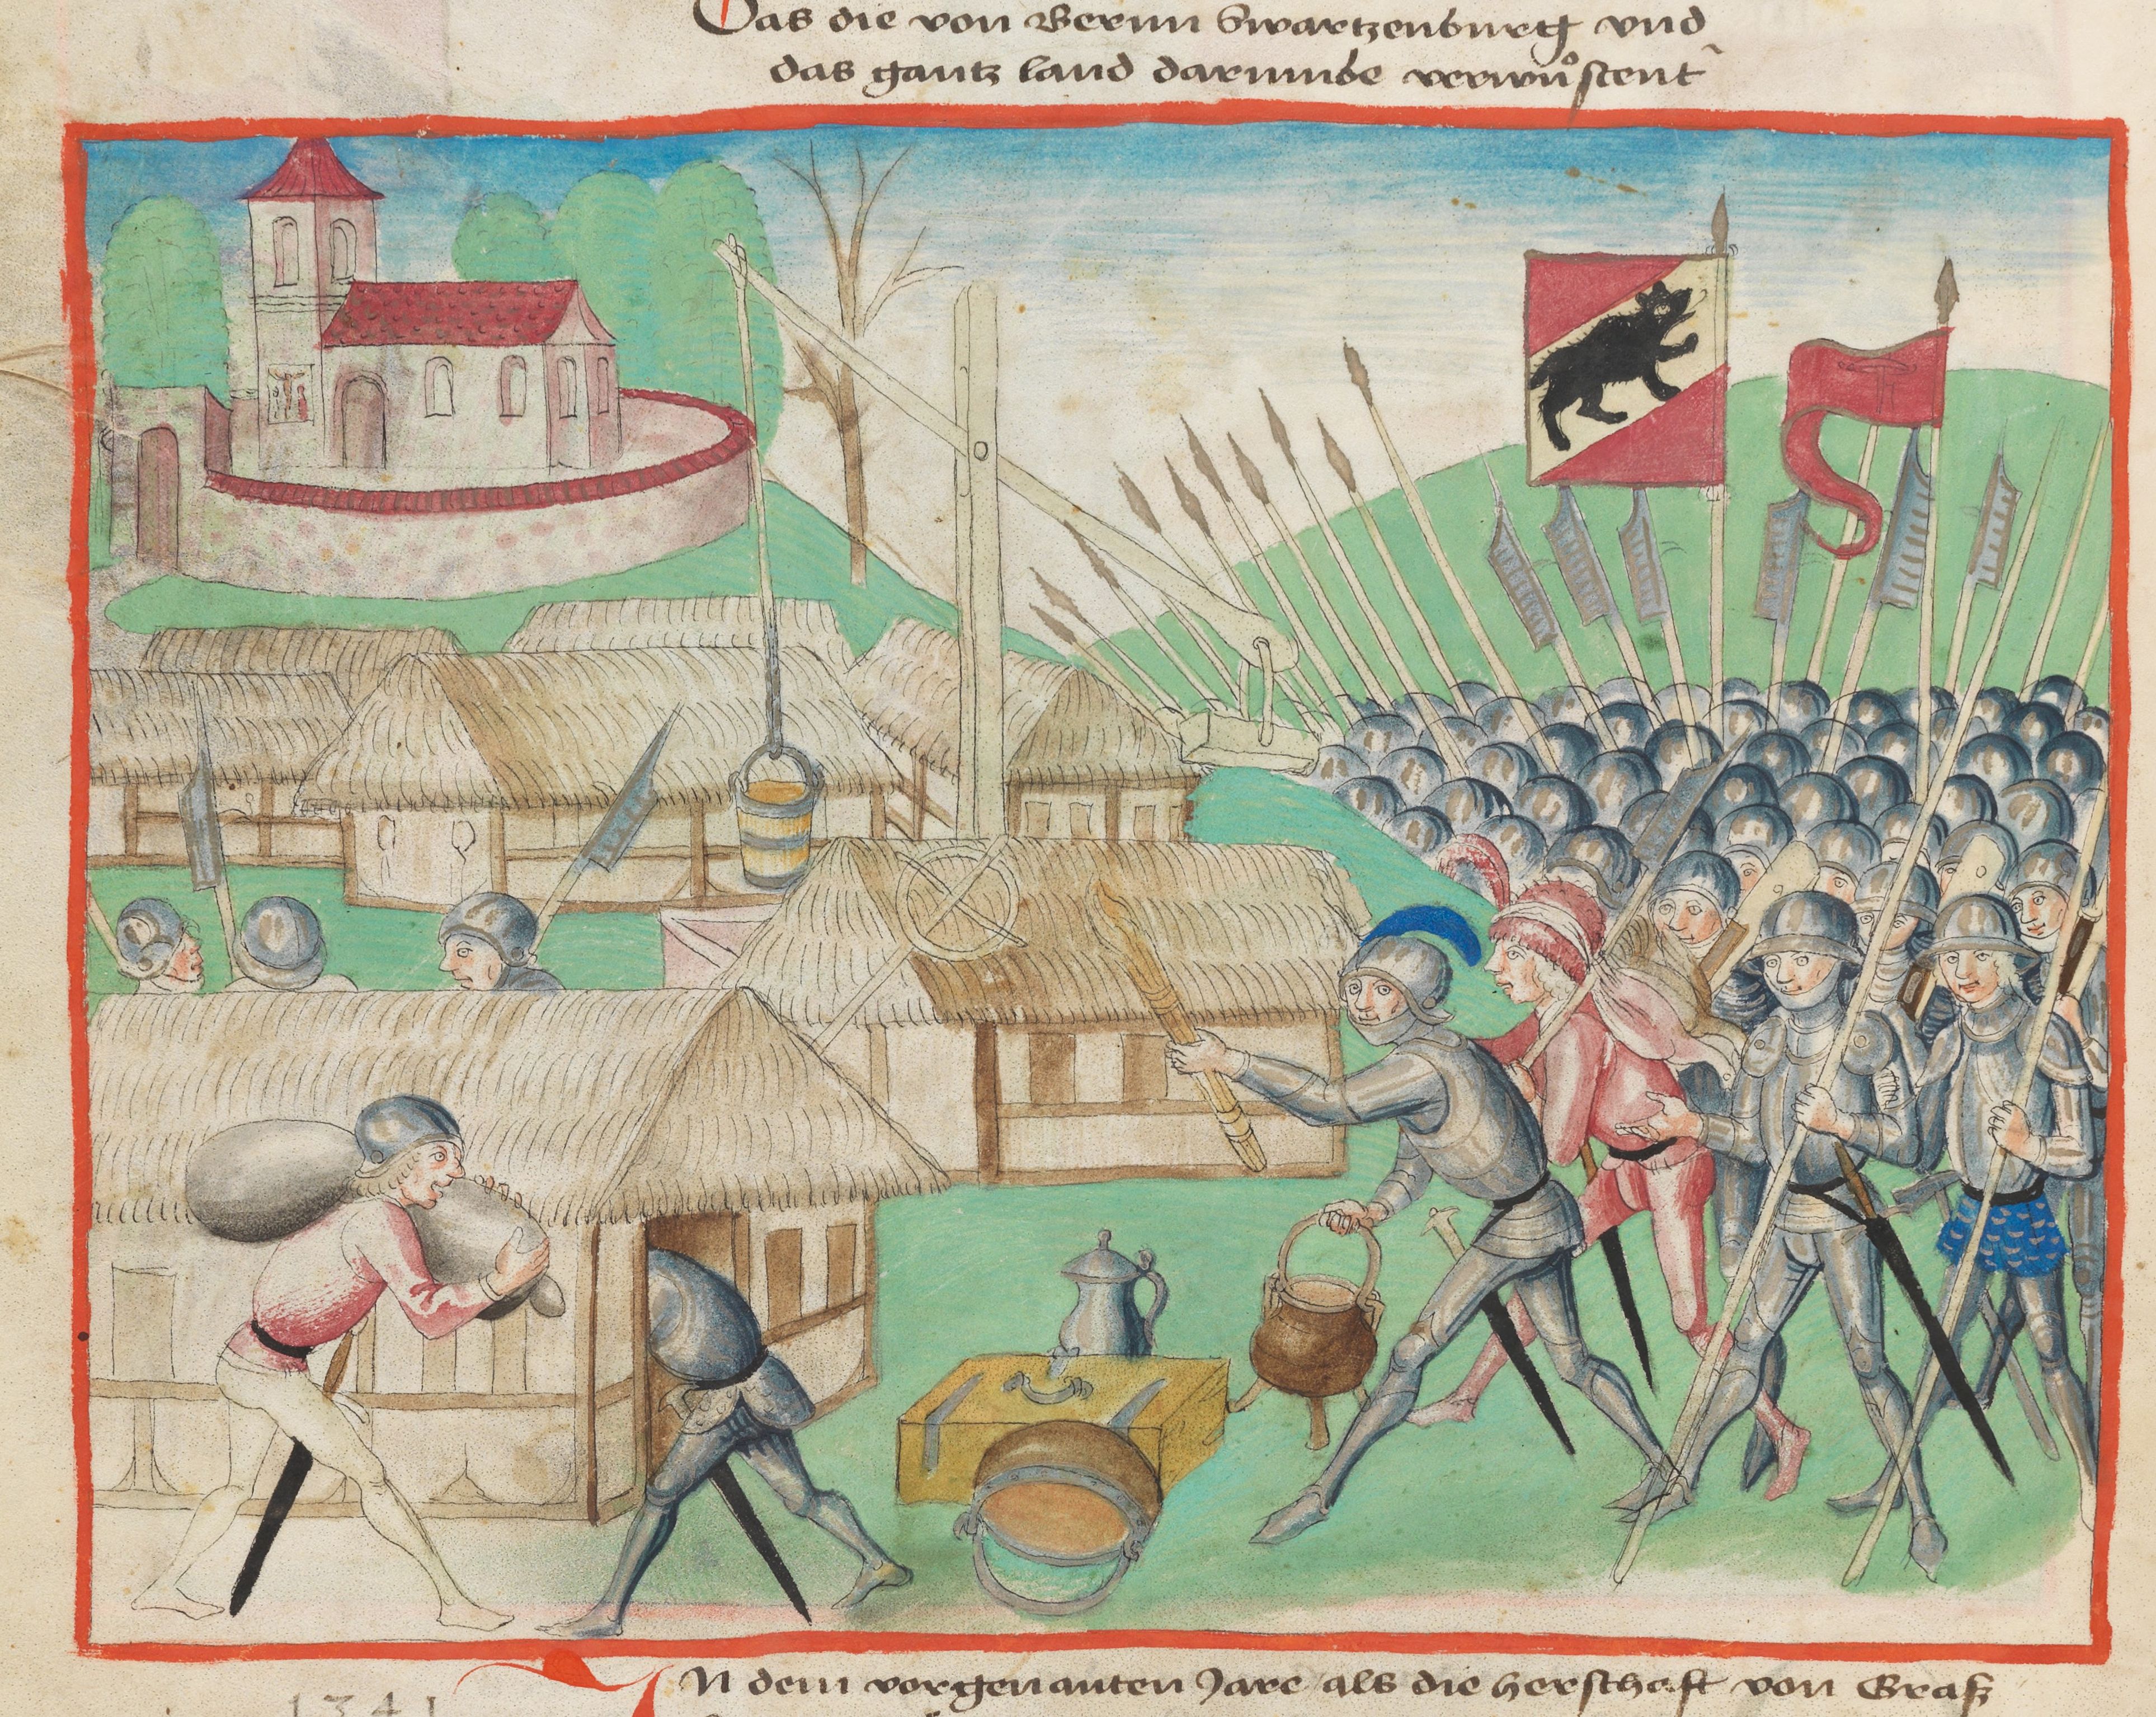 Das die von Bernn Swartzenburg vnd
das gantz land darumbe verwuͦstent
In dem vorgenanten Jare als die herschaft von Graſz
1341